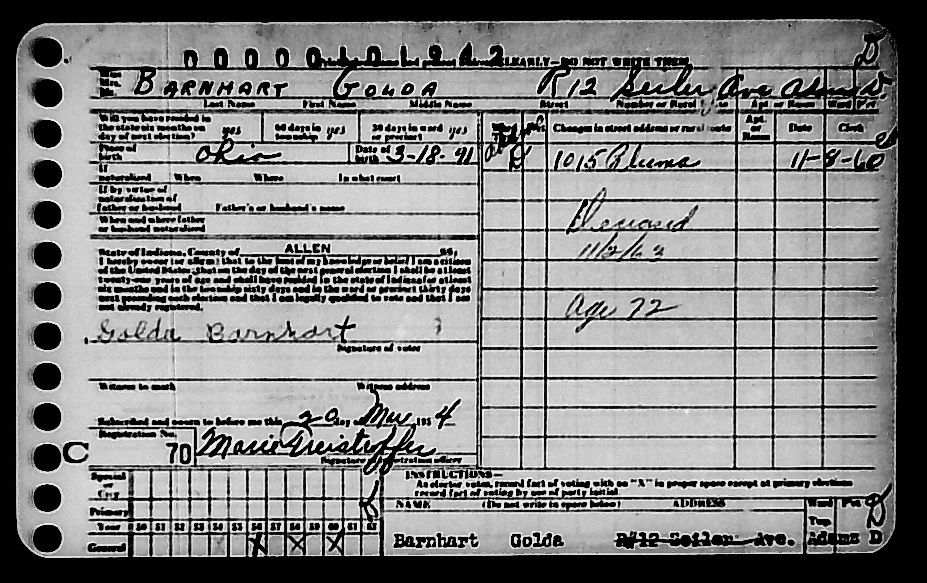 0 0 0 0 0 1 0 1 9 4 2
CLEARLY—DO NOT WRITE THEM D
Miss Mrs. Mr. BARNHART GOLDA R 12 Seiler Ave Adams D.
Last Name First Name Middle Name Street Number or Rural Route Apt or Room Ward Pct
Will you have resided in the state six months on day of next election? yes 60 days in township yes 30 days in ward or precinct yes
Changes in street address or rural route Apt. or Room Date Clerk
Place of birth Ohio Date of birth 3-18-91
D 1015 Bluma 11-8-60
If naturalized When Where In what court
If by virtue of naturalization of father or husband Father's or husband's name
Deceased
When and where father or husband naturalized
11/2/63
State of Indiana, County of ALLEN SS:
I hereby swear (or affirm) that to the best of my knowledge or belief I am a citizen
of the United States; that on the day of the next general election I shall be at least
twenty-one years of age and shall have resided in the state of Indiana for at least
six months and in the township sixty days and in the ward or precinct thirty days
next preceding such election and that I am legally qualified to vote and that I am
not already registered.
Age 72
Golda Barnhart
Signature of voter
Witness to mark Witness address
Subscribed and sworn to before me this 20 day of 195 4
Registration No.
C 70 Marie
Signature of registration officer
INSTRUCTIONS—
At elector votes, record fact of voting with an "X" in proper space except at primary elections
record fact of voting by use of party initial.
Special or City
Primary
Year 50 51 52 53 54 55 56 57 58 59 60 61 62
General X X X
NAME (Do not write in space below) ADDRESS Ward Pct D
Twp.
Barnhart Golda R#12 Seiler Ave. Adams D